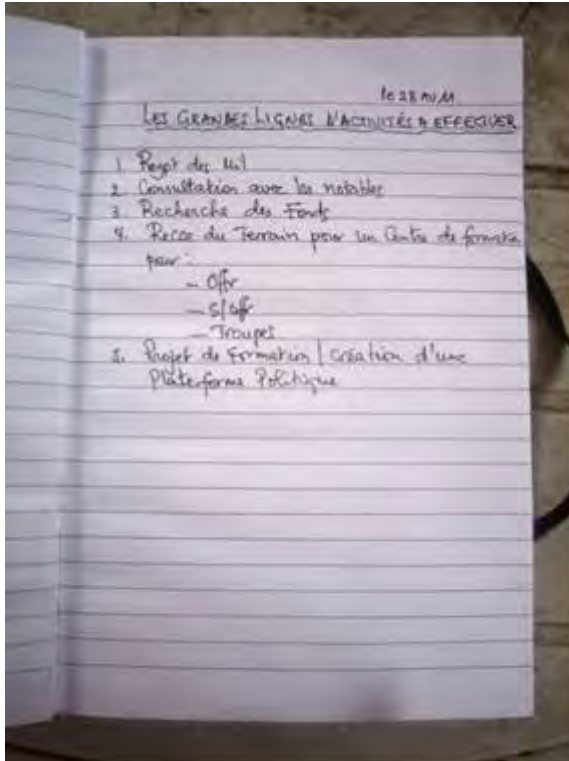 le 28
LES GRANDES LIGNES D'ACTIVITÉS A EFFECTUER
1. Projet des Mil
2. Consultation avec les notables
3. Recherche des Fonds
4. Recce du Terrain pour un Centre de formation
pour :
- Offr
- S/offr
- Troupes
5. Projet de Formation / création d'une
Plateforme Politique